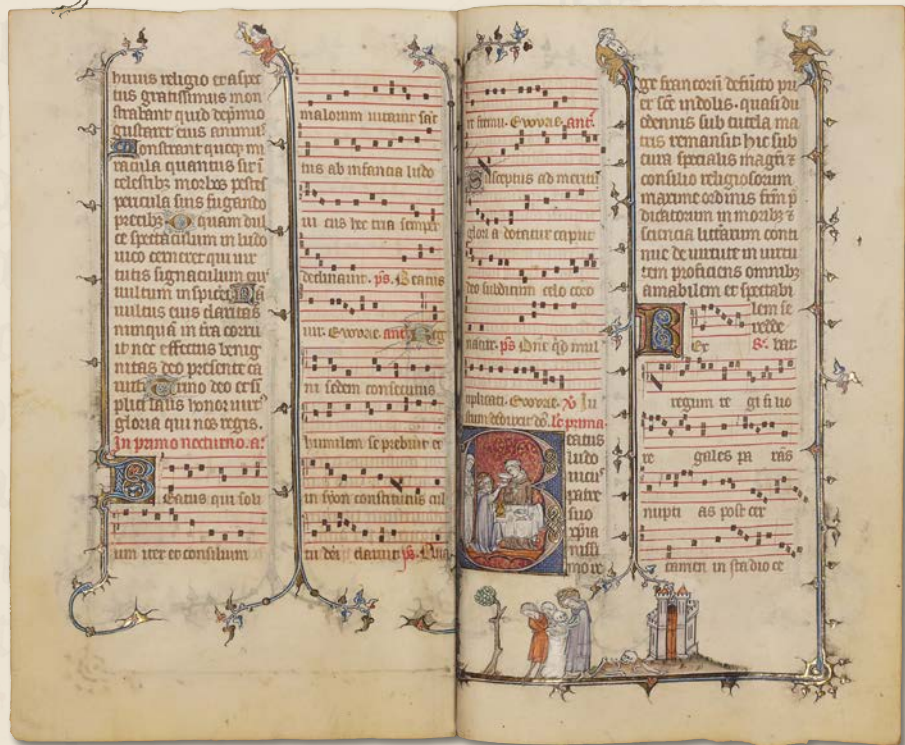 huius religio et aspec
tus gratissimus mon
strabant quid
gustaret eius animus
onstrant quoqꝫ mi
racula quantus sit
celestibꝫ morbos
pericula suis fugando
precibꝫ O quam dul
ce spectaculum in ludo
uico cerneret qui vir
tutis signaculum
uultum inspiceret
uultus eius claritas
nunquā in
nec effectus benig
nitas deo presente
Trino deo et sī
plici laus honor
gloria qui nos regis.
In primo nocturno. a.
Beatus qui
um iter et consilium
malorum uitauit
tus ab infancia ludo
ui cus hec tria semper
declinauit. ps. Beatus
uir. Evovae. ant. Reg
ni sedem consecutus
humilem se prebuit et
in syon constitutus cul
tu dei claruit ps.
Evovae. ant.
Susceptus ad
glori a dotatur caput
deo subditum celo coro
natur. ps Dn̄e qd mul
tiplicati. Evovae.
stum deduxit
Beatus
ludo
patre
suo
xp̄ia
nissi
mo re
ge francorū defuncto
indolis. quasi du
odennis sub tutela ma
tris remansit hic sub
cura specialis
consilio religiosorum
maxime ordinis
dicatorum in moribꝫ
sciencia litterarum conti
nue de uirtute in uirtu
tem proficiens omnibꝫ
amabilem et spectabi
lem se
redde
bat.
Rex
regum re gi fi lio
re gales pa ras
nupti as post cer
tamen in sta dio ce